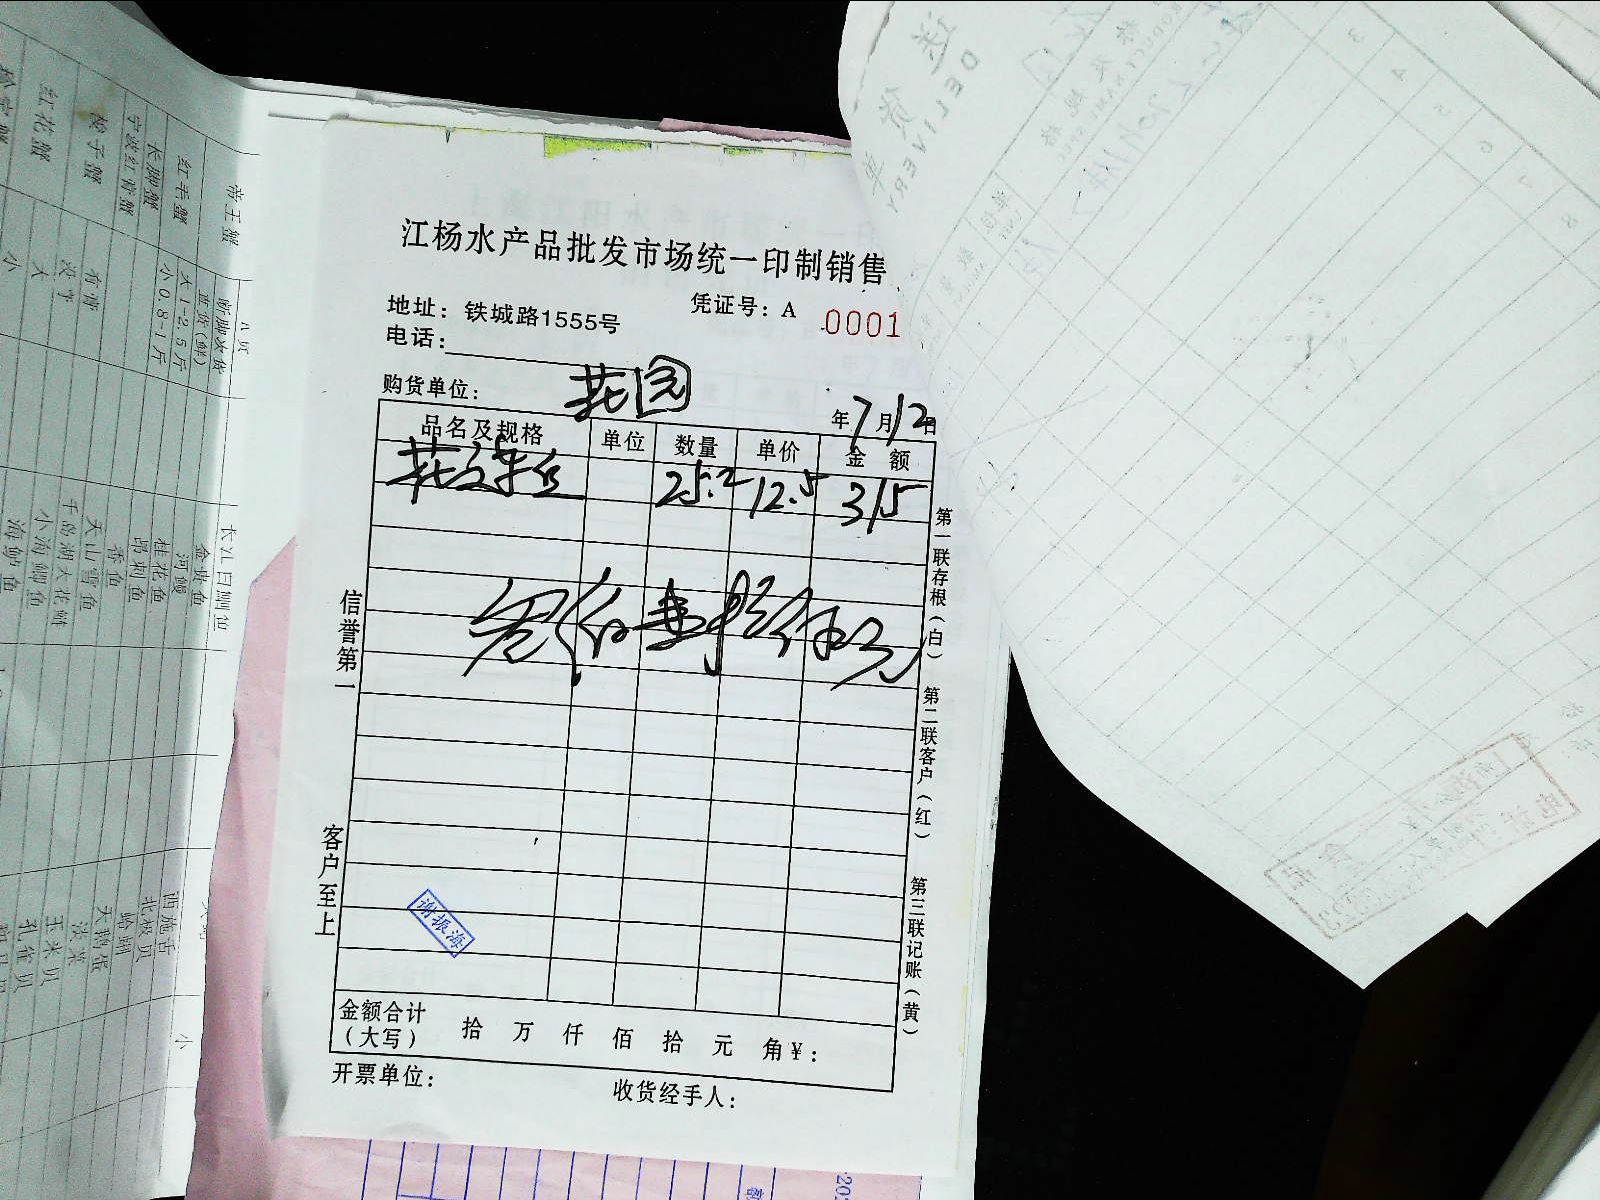 江杨水产品批发市场统一印制销售
地址：铁城路1555号
凭证号：A 0001
电话：
购货单位：花园
年7月12日
品名及规格 单位 数量 单价 金额
25.2 12.5 315
叁佰壹拾伍元
信誉第一
客户至上
第一联存根（白）
第二联客户（红）
第三联记账（黄）
谢振海
金额合计（大写） 拾 万 仟 佰 拾 元 角 ¥：
开票单位：
收货经手人：
帝王蟹
红毛蟹
长脚蟹
宁波红膏蟹
梭子蟹
红花蟹
A页
断脚次货
血货(鲜)
大1-2.5斤
小0.8-1斤
有膏
没膏
大
小
金贵鱼
河鳗
桂花鱼
昂刺鱼
香鱼
天山雪鱼
千岛湖大花鲢
小海鲫鱼
海鲈鱼
西施舌
北极贝
蛤蜊
大鹅蛋
淡菜
玉米贝
孔雀贝
小
送货单
DELIVERY
3
4
5
6
7
8